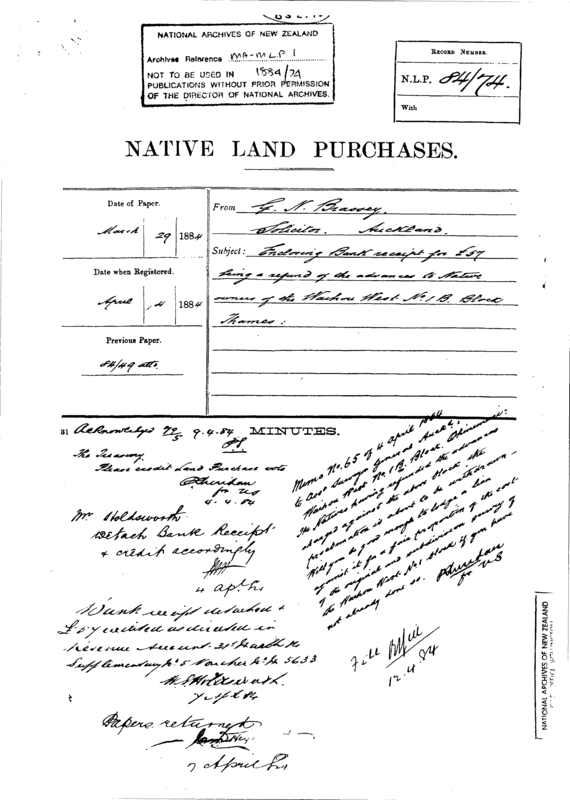 NATIONAL ARCHIVES OF NEW ZEALAND
Archives Reference MA-MLP 1
1884/74
NOT TO BE USED IN
PUBLICATIONS WITHOUT PRIOR PERMISSION
OF THE DIRECTOR OF NATIONAL ARCHIVES.
RECORD NUMBER.
N.L.P. 84/74.
With
NATIVE LAND PURCHASES.
Date of Paper.
March 29 1884
Date when Registered.
April 4 1884
Previous Paper.
84/49
From G. N. Brassey.
Solicitor. Auckland.
Subject: Enclosing Bank receipt for £57
being a refund of the advances to Native
owners of the Waihou West No 1 B. Block
Thames:
MINUTES.
Acknowledged 9.4.84
The Treasury,
Please credit Land Purchase vote
PSheridan
for US
4.4.84
Mr Holdsworth
Detach Bank Receipt
& credit accordingly
4 Apl
Bank receipt detached &
£57 credited as directed in
Revenue Account 31st March
Supplementary No 5 Voucher No 5633
Holdsworth
Papers returned
7 April 84
Memo No. 65 of 4 April 1884
to Asst Surveyor General Auckd.
Waihou West No. 1 B. Block. Ohinemuri:
The Natives having refunded the advances
charged against the above block the
proclamation is about to be withdrawn.
Will you be good enough to lodge a lien
against it for a fair proportion of the cost
of the original and subdivision survey of
the Waihou West No 1 block if you have
not already done so.
PSheridan
for US
File
12.4.84
NATIONAL ARCHIVES OF NEW ZEALAND